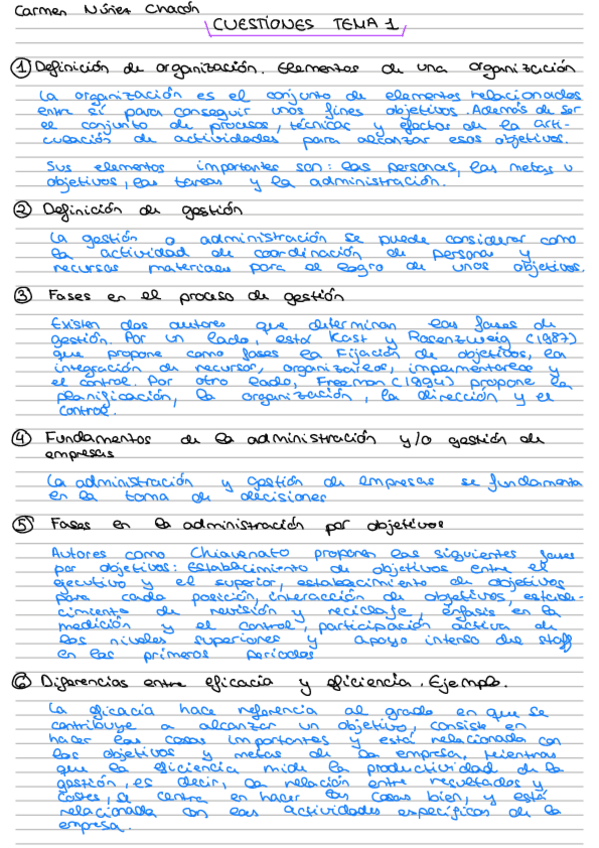 Carmen Núñez Chacón
CUESTIONES TEMA 1
① Definición de organización. Elementos de una organización
La organización es el conjunto de elementos relacionados
entre sí para conseguir unos fines objetivos. Además de ser
el conjunto de procesos, técnicas y efectos de la arti-
culación de actividades para alcanzar esos objetivos.
Sus elementos importantes son: las personas, las metas u
objetivos, las tareas y la administración.
② Definición de gestión
La gestión o administración se puede considerar como
la actividad de coordinación de personas y
recursos materiales para el logro de unos objetivos.
③ Fases en el proceso de gestión
Existen dos autores que determinan las fases de
gestión. Por un lado, está Kast y Rosenzweig (1987)
que propone como fases la Fijación de objetivos, la
integración de recursos, organizarlos, implementarlos y
el control. Por otro lado, Freeman (1994) propone la
planificación, la organización, la dirección y el
control.
④ Fundamentos de la administración y/o gestión de
empresas
La administración y gestión de empresas se fundamenta
en la toma de decisiones
⑤ Fases en la administración por objetivos
Autores como Chiavenato proponen las siguientes fases
por objetivos: Establecimiento de objetivos entre el
ejecutivo y el superior, establecimiento de objetivos
para cada posición, interacción de objetivos, estable-
cimiento de revisión y reciclaje, énfasis en la
medición y el control, participación activa de
los niveles superiores y apoyo intenso del staff
en los primeros periodos
⑥ Diferencias entre eficacia y eficiencia. Ejemplo.
La eficacia hace referencia al grado en que se
contribuye a alcanzar un objetivo, consiste en
hacer las cosas importantes y está relacionada con
los objetivos y metas de la empresa, mientras
que la eficiencia mide la productividad de la
gestión, es decir, la relación entre resultados y
costes, se centra en hacer las cosas bien, y está
relacionada con las actividades específicas de la
empresa.